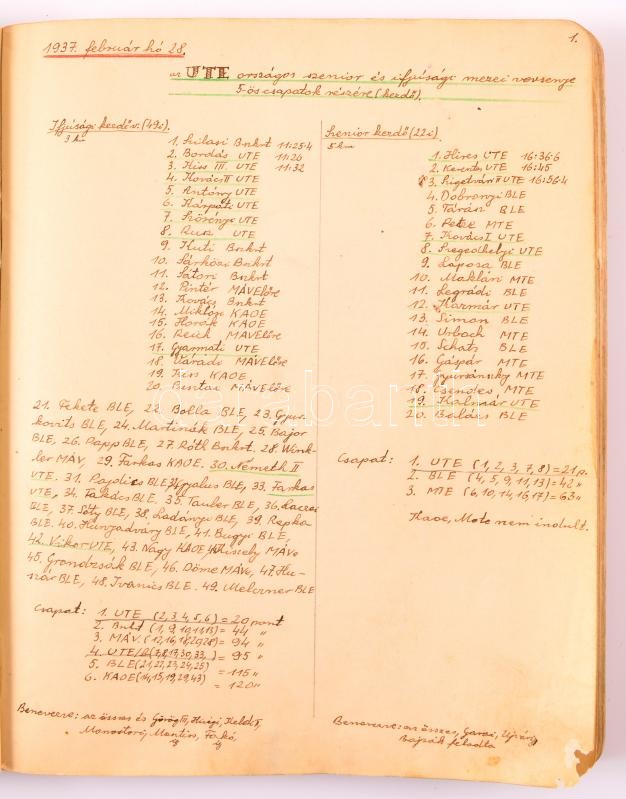 1.
1937. február hó 28.
az UTE országos szenior és ifjúsági mezei versenye
5-ös csapatok részére (kezdő).
Ifjúsági kezdő v. (49 i).
3 km
1. Szilasi Bnkrt 11:25.4
2. Bordás UTE 11:26
3. Kiss III. UTE 11:32
4. Kovács II UTE
5. Antóny UTE
6. Kárpáti UTE
7. Szörényi UTE
8. Rusz UTE
9. Huti Bnkrt
10. Sárközi Bnkrt
11. Sátori Bnkrt
12. Pintér MÁVElőre
13. Kovács Bnkrt
14. Miklósi KAOE
15. Horák KAOE
16. Reich MÁVElőre
17. Gyarmati UTE
18. Váradi MÁVElőre
19. Kiss KAOE
20. Buntai MÁVElőre
21. Fekete BLE, 22. Bolla BLE, 23. Gyur-
kovits BLE, 24. Martinák BLE, 25. Bajor
BLE, 26. Papp BLE, 27. Róth Bnkrt. 28. Wink-
ler MÁV, 29. Farkas KAOE. 30. Németh II
UTE. 31. BLE, BLE, 33. Farkas
UTE, 34. Takács BLE, 35. Tauber BLE, 36.
BLE, 37. Sóty BLE, 38. Ladányi BLE, 39. Repka
BLE. 40. Hunyadváry BLE, 41. Bugyi BLE,
42. Vikor UTE, 43. Nagy KAOE, Kissely MÁV.
45. Grondzsák BLE, 46. Döme MÁV, 47. Hu-
szár BLE, 48. Ivanics BLE. 49. Melczner BLE
Csapat: 1. UTE (2,3,4,5,6) = 20 pont
2. Bnkt (1,9,10,11,13) = 44 "
3. MÁV (12,16,18,20,28) = 94 "
4. UTE/B (7,8,17,30,33) = 95 "
5. BLE (21,22,23,24,25) = 115 "
6. KAOE (14,15,19,29,43) = 120 "
Benevezve: az összes és Görög III, Hugi, Keld I,
Monostori, Mantius, Fakó,
Szenior kezdő (22 i).
5 km
1. Híres UTE 16:36.6
2. Kerents UTE 16:45
3. Szigetvári II UTE 16:56.4
4. Dobronyi BLE
5. Tárár BLE
6. Péter MTE
7. Kovács I UTE
8. Szegedhelyi UTE
9. Laposa BLE
10. Maklári MTE
11. Legrádi BLE
12. Kazmár UTE
13. Simon BLE
14. Urbach MTE
15. Schatz BLE
16. Gáspár MTE
17. Gyurcsánszky MTE
18. Csendes MTE
19. Kalmár UTE
20. Balázs BLE
Csapat: 1. UTE (1,2,3,7,8) = 21 p.
2. BLE (4,5,9,11,13) = 42 "
3. MTE (6,10,14,16,17) = 63 "
Kaoe, Moto nem indult.
Benevezve: az összes, Garai, Ujvári,
Bajzák feladta
darabanth